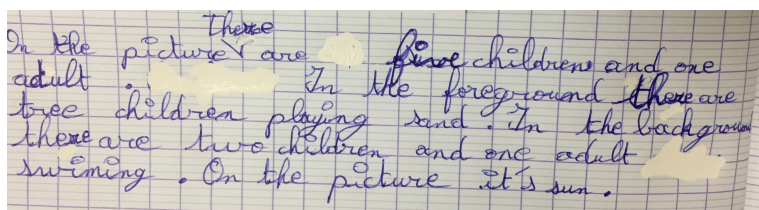 there
In the picture are five childrens and one
adult. In the foreground there are
tree children playing sand. In the background
there are two children and one adult
swiming. On the picture it's sun.